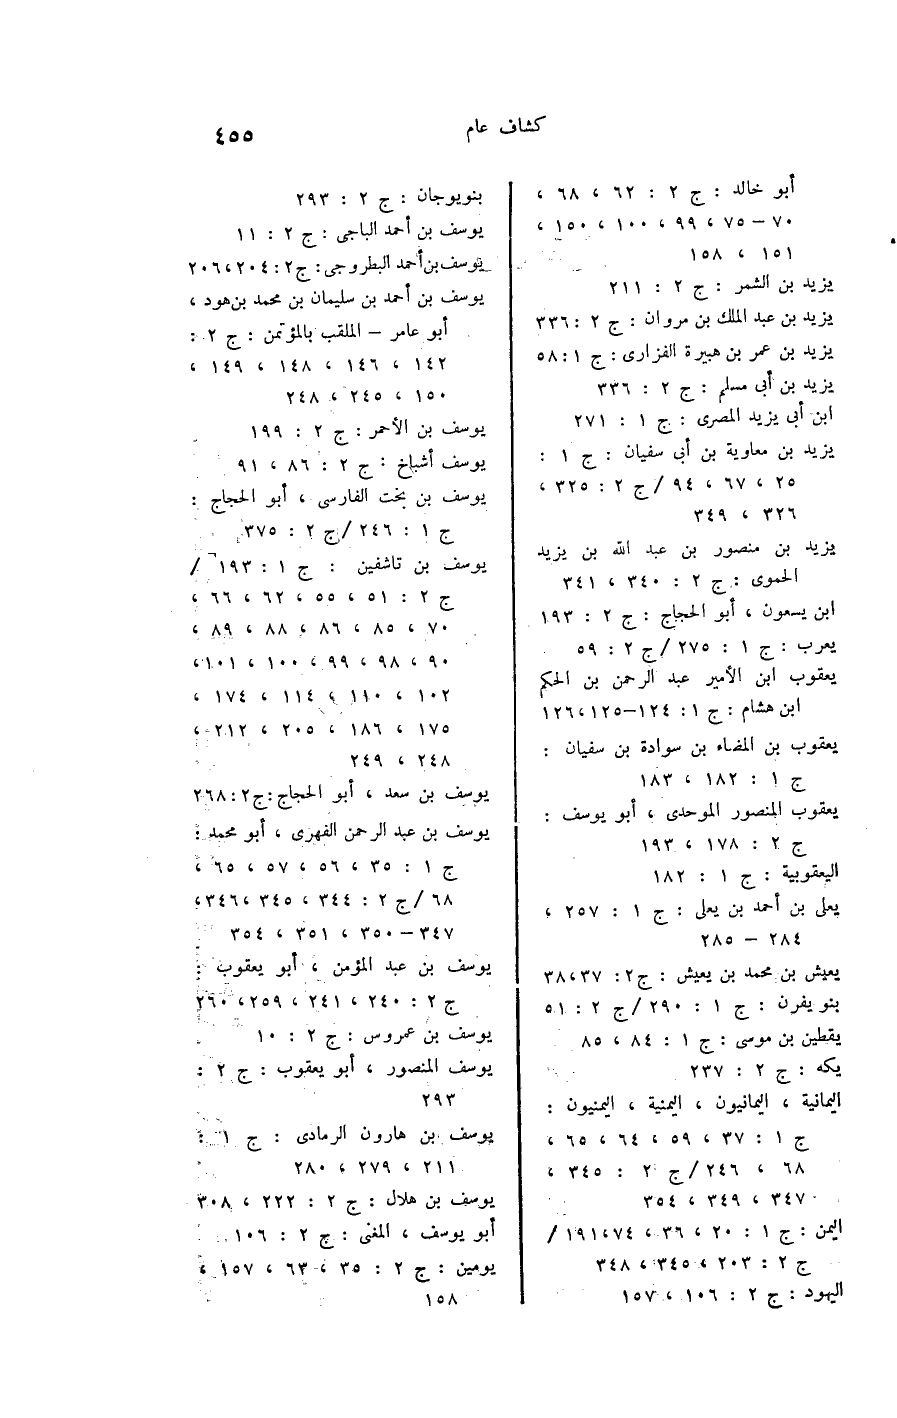 كشاف عام
٤٥٥
أبو خالد : ج ٢ : ٦٢ ، ٦٨ ،
٧٠ – ٧٥ ، ٩٩ ، ١٠٠ ، ١٥٠ ،
١٥١ ، ١٥٨
يزيد بن الشمر : ج ٢ : ٢١١
يزيد بن عبد الملك بن مروان : ج ٢ : ٣٣٦
يزيد بن عمر بن هبيرة الفزارى : ج ١ : ٥٨
يزيد بن أبى مسلم : ج ٢ : ٣٣٦
ابن أبى يزيد المصرى : ج ١ : ٢٧١
يزيد بن معاوية بن أبى سفيان : ج ١ :
٢٥ ، ٦٧ ، ٩٤ / ج ٢ : ٣٢٥ ،
٣٢٦ ، ٣٤٩
يزيد بن منصور بن عبد الله بن يزيد
الحموى : ج ٢ : ٣٤٠ ، ٣٤١
ابن يسعون ، أبو الحجاج : ج ٢ : ١٩٣
يعرب : ج ١ : ٢٧٥ / ج ٢ : ٥٩
يعقوب ابن الأمير عبد الرحمن بن الحكم
ابن هشام : ج ١ : ١٢٤–١٢٥ ، ١٢٦
يعقوب بن المضاء بن سوادة بن سفيان :
ج ١ : ١٨٢ ، ١٨٣
يعقوب المنصور الموحدى ، أبو يوسف :
ج ٢ : ١٧٨ ، ١٩٣
اليعقوبية : ج ١ : ١٨٢
يعلى بن أحمد بن يعلى : ج ١ : ٢٥٧ ،
٢٨٤ – ٢٨٥
يعيش بن محمد بن يعيش : ج ٢ : ٣٧ ، ٣٨
بنو يفرن : ج ١ : ٢٩٠ / ج ٢ : ٥١
يقطين بن موسى : ج ١ : ٨٤ ، ٨٥
يكه : ج ٢ : ٢٣٧
اليمانية ، اليمانيون ، اليمنية ، اليمنيون :
ج ١ : ٣٧ ، ٥٩ ، ٦٤ ، ٦٥ ،
٦٨ ، ٢٤٦ / ج ٢ : ٣٤٥ ،
٣٤٧ ، ٣٤٩ ، ٣٥٤
اليمن : ج ١ : ٢٠ ، ٣٦ ، ٧٤ ، ١٩١ /
ج ٢ : ٢٠٣ ، ٣٤٥ ، ٣٤٨
اليهود : ج ٢ : ١٠٦ ، ١٥٧
بنويوجان : ج ٢ : ٢٩٣
يوسف بن أحمد الباجى : ج ٢ : ١١
يوسف بن أحمد البطروجى : ج ٢ : ٢٠٤ ، ٢٠٦
يوسف بن أحمد بن سليمان بن محمد بن هود ،
أبو عامر – الملقب بالمؤتمن : ج ٢ :
١٤٢ ، ١٤٦ ، ١٤٨ ، ١٤٩ ،
١٥٠ ، ٢٤٥ ، ٢٤٨
يوسف بن الأحمر : ج ٢ : ١٩٩
يوسف أشباخ : ج ٢ : ٨٦ ، ٩١
يوسف بن بخت الفارسى ، أبو الحجاج :
ج ١ : ٢٤٦ / ج ٢ : ٣٧٥
يوسف بن تاشفين : ج ١ : ١٩٣ /
ج ٢ : ٥١ ، ٥٥ ، ٦٢ ، ٦٦ ،
٧٠ ، ٨٥ ، ٨٦ ، ٨٨ ، ٨٩ ،
٩٠ ، ٩٨ ، ٩٩ ، ١٠٠ ، ١٠١ ،
١٠٢ ، ١١٠ ، ١١٤ ، ١٧٤ ،
١٧٥ ، ١٨٦ ، ٢٠٥ ، ٢١٢ ،
٢٤٨ ، ٢٤٩
يوسف بن سعد ، أبو الحجاج : ج ٢ : ٢٦٨
يوسف بن عبد الرحمن الفهرى ، أبو محمد :
ج ١ : ٣٥ ، ٥٦ ، ٥٧ ، ٦٥ ،
٦٨ / ج ٢ : ٣٤٤ ، ٣٤٥ ، ٣٤٦ ،
٣٤٧ – ٣٥٠ ، ٣٥١ ، ٣٥٤
يوسف بن عبد المؤمن ، أبو يعقوب :
ج ٢ : ٢٤٠ ، ٢٤١ ، ٢٥٩ ، ٢٦٠
يوسف بن عمروس : ج ٢ : ١٠
يوسف المنصور ، أبو يعقوب : ج ٢ :
٢٩٣
يوسف بن هارون الرمادى : ج ١ :
٢١١ ، ٢٧٩ ، ٢٨٠
يوسف بن هلال : ج ٢ : ٢٢٢ ، ٣٠٨
أبو يوسف ، المغنى : ج ٢ : ١٠٦
يومين : ج ٢ : ٣٥ ، ٦٣ ، ١٥٧ ،
١٥٨